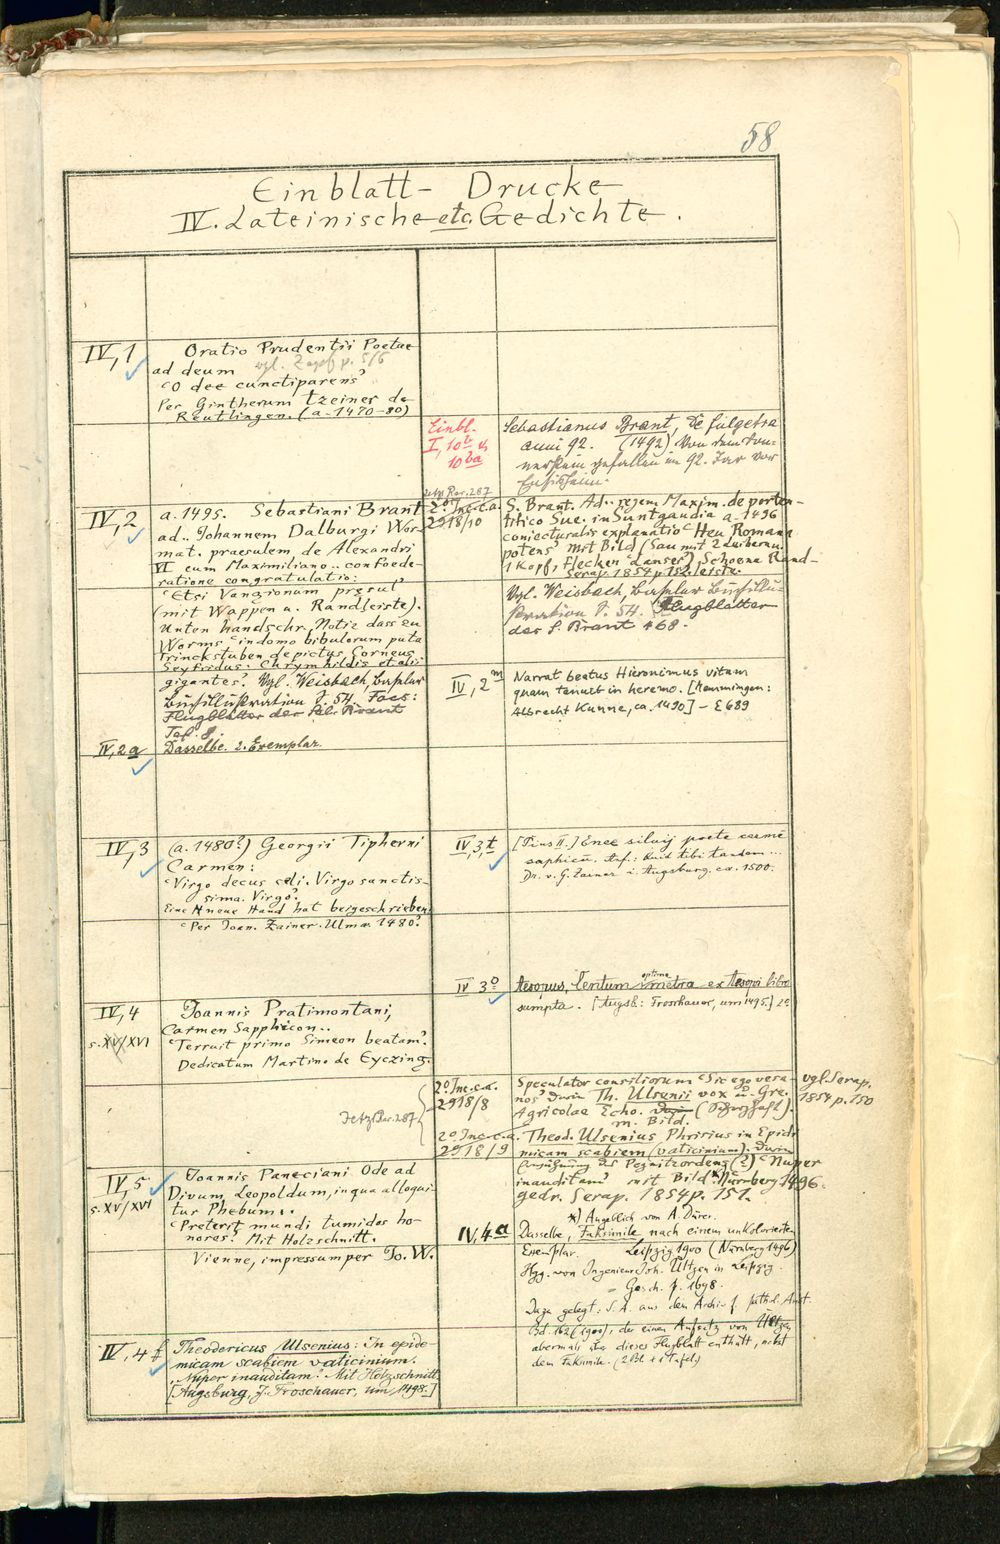 58
Einblatt- Drucke
IV. Lateinische etc. Gedichte.
IV,1
Oratio Prudentii Poetae
ad deum vgl. Zapf p. 5/6
"O dee cunctiparens"
Per Gintherum Tzeiner de
Reutlingen. (a. 1470-80)
IV,2
a. 1495. Sebastiani Brant
ad.. Johannem Dalburgi Wor-
mat. praesulem, de Alexandri
VI cum Maximiliano.. confoede-
ratione congratulatio:
"Etsi Vangionum presul"
(mit Wappen u. Randleiste).
Unten handschr. Notiz dass zu
Worms "in domo bibulorum puta
Trinckstuben depictus Corneus
Seyfridus: Chrymhildis et alii
gigantes". Vgl. Weisbach, Basler
Buchillustration S. 54. Facs:
Flugblätter des Seb. Brant
Taf. 8.
IV,2a
Dasselbe. 2. Exemplar.
IV,3
(a. 1480?) Georgii Tipherni
Carmen:
"Virgo decus celi. Virgo sanctis-
sima. Virgo".
Eine neue Hand hat beigeschrieben
"Per Joan. Zainer. Ulmae 1480".
IV,4
s. XV/XVI
Joannis Pratimontani,
Carmen Sapphicon..
"Terruit primo Simeon beatam".
Dedicatum Martino de Eyczing.
IV,5
s. XV/XVI
Joannis Paneciani Ode ad
Divum Leopoldum, in qua alloqui-
tur Phebum..
"Preterit mundi tumidos ho-
nores". Mit Holzschnitt.
Vienne, impressum per Jo. W.
IV,4f
Theodericus Ulsenius: In epide-
micam scabiem vaticinium.
"Nuper inauditam." Mit Holzschnitt
[Augsburg, J. Froschauer, um 1498.]
Einbl.
I, 10b &
10ba
Sebastianus Brant, De fulgetra
anni 92. (1492) Von dem Don-
nerstein gefallen im 92. Jar vor
Ensisheim.
jetzt Rar. 287
2° Inc. c. a.
2918/10
S. Brant. Ad.. regem Maxim. de porten-
tifico Sue. in Suntgaudia a. 1496
coniecturalis explanatio "Heu Romana
potens" mit Bild (Sau mit 2 Leibern u.
1 Kopf, Flecken Lanser), Schoene Rand-
leiste. Serap. 1854 p. 152.
Vgl. Weisbach, Basler Buchillu-
stration S. 54. Flugblätter
des S. Brant 468.
IV, 2m
Narrat beatus Hieronimus vitam
quam tenuit in heremo. [Memmingen:
Albrecht Kunne, ca. 1490] – E 689
IV,3,t
[Pius II.] Enee silvij poete carmē
saphicū. Inf.: Quid tibi tandem ...
Dr. v. G. Zainer i. Augsburg. ca. 1500.
IV 3o
Aesopus, Centum optima metra ex Aesopi libro
sumpta. [Augsb.: Froschauer, um 1495.] 2°
Jetzt Rar. 287
2° Inc. c. a.
2918/8
Speculator consiliorum "Sic ego vesa-
nos" durin Th. Ulsenii vox u. Gre.
Agricolae Echo. (Scherzhaft).
m. Bild.
vgl. Serap.
1854 p. 150
2° Inc. c. a.
2918/9
Theod. Ulsenius Phrisius in Epide
micam scabiem (vaticinium). Durin
Erwähnung des Pegnitzordens (?) "Nuper
inauditam" mit Bild *) Nürnberg 1496.
gedr. Serap. 1854 p. 151.
*) Angeblich von A. Dürer.
IV,4a
Dasselbe, Faksimile nach einem unkolorierten
Exemplar. Leipzig 1900 (Nürnberg 1496)
Hgg. von Ingenieur Joh. Ültzen in Leipzig.
= Gesch. f. 1698.
Dazu gelegt: S. A. aus dem Archiv f. path. Anat.
Bd. 162 (1900), der einen Aufsatz von Ültzen
abermals über dieses Flugblatt enthält, nebst
dem Faksimile. (2 Bl. + 1 Tafel)